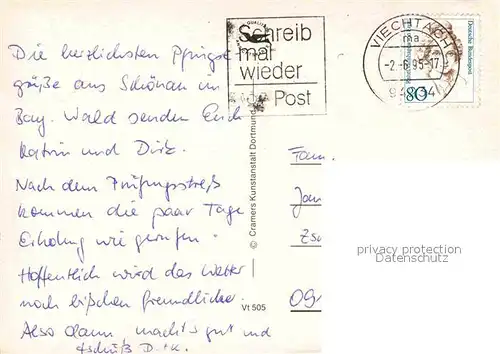 Die herzlichsten Pfingst-
grüße aus Schönau im
Bay. Wald senden Euch
Katrin und Dirk.
Nach dem Prüfungsstreß
kommen die paar Tage
Erholung wie gerufen.
Hoffentlich wird das Wetter
noch bißchen freundlicher.
Also dann, macht's gut und
tschüß D.+K.
Vt 505
© Cramers Kunstanstalt Dortmund
Schreib
mal
wieder
Post
VIECHTACH
ma
-2.-6.95-17
94
Deutsche Bundespost
80
Fam.
Jan
Zs
09
privacy protection
Datenschutz